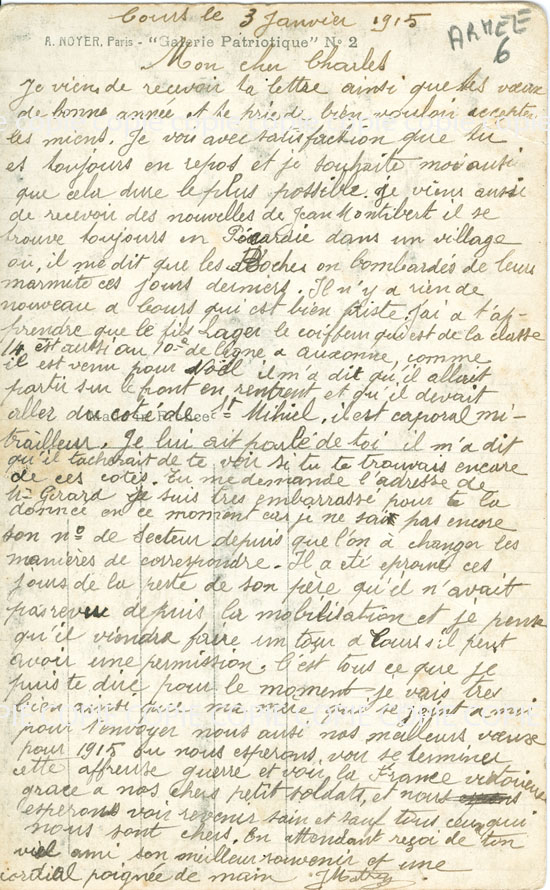 Cours le 3 Janvier 1915
A. NOYER, Paris - "Galerie Patriotique" No 2
ARMEE
6
Mon cher Charles
Je viens de recevoir ta lettre ainsi que tes vœux
de bonne année et te prie de bien vouloir accepter
les miens. Je vois avec satisfaction que tu
es toujours en repos et je souhaite moi aussi
que cela dure le plus possible. Je viens aussi
de recevoir des nouvelles de Jean Montibert il se
trouve toujours en Picardie dans un village
où, il me dit que les Boches on bombardés de leurs
marmites ces jours derniers. Il n'y a rien de
nouveau a Cours qui est bien triste. J'ai a t'ap-
prendre que le fils Lager le coiffeur qui est de la classe
14 est aussi au 10e de ligne a auxonne, comme
il est venu pour Noël il m'a dit qu'il allait
partir sur le front en rentrent et qu'il devait
aller du coté de St Mihiel, il est caporal mi-
trailleur. Je lui ait parlé de toi il m'a dit
qu'il tacherait de te voir si tu te trouvais encore
de ces cotés. Tu me demande l'adresse de
Girard je suis tres embarrassé pour te la
donnée en ce moment car je ne sait pas encore
son no de Secteur depuis que l'on à changer les
manières de correspondre. Il a été eprouvé ces
jours de la perte de son père qu'il n'avait
pas revu depuis la mobilisation et je pense
qu'il viendra faire un tour a Cours s'il peut
avoir une permission. C'est tous ce que je
puis te dire pour le moment je vais très
bien ainsi que ma mère qui se joint a moi
pour t'envoyer nous aussi nos meilleurs vœux
pour 1915 ou nous esperons voir se terminer
cette affreuse guerre et voir la France victorieuse
grace a nos chers petit soldats, et nous
esperons voir revenir sain et sauf tous ceux qui
nous sont chers. En attendant reçoi de ton
vieil ami son meilleur souvenir et une
cordial poignée de main